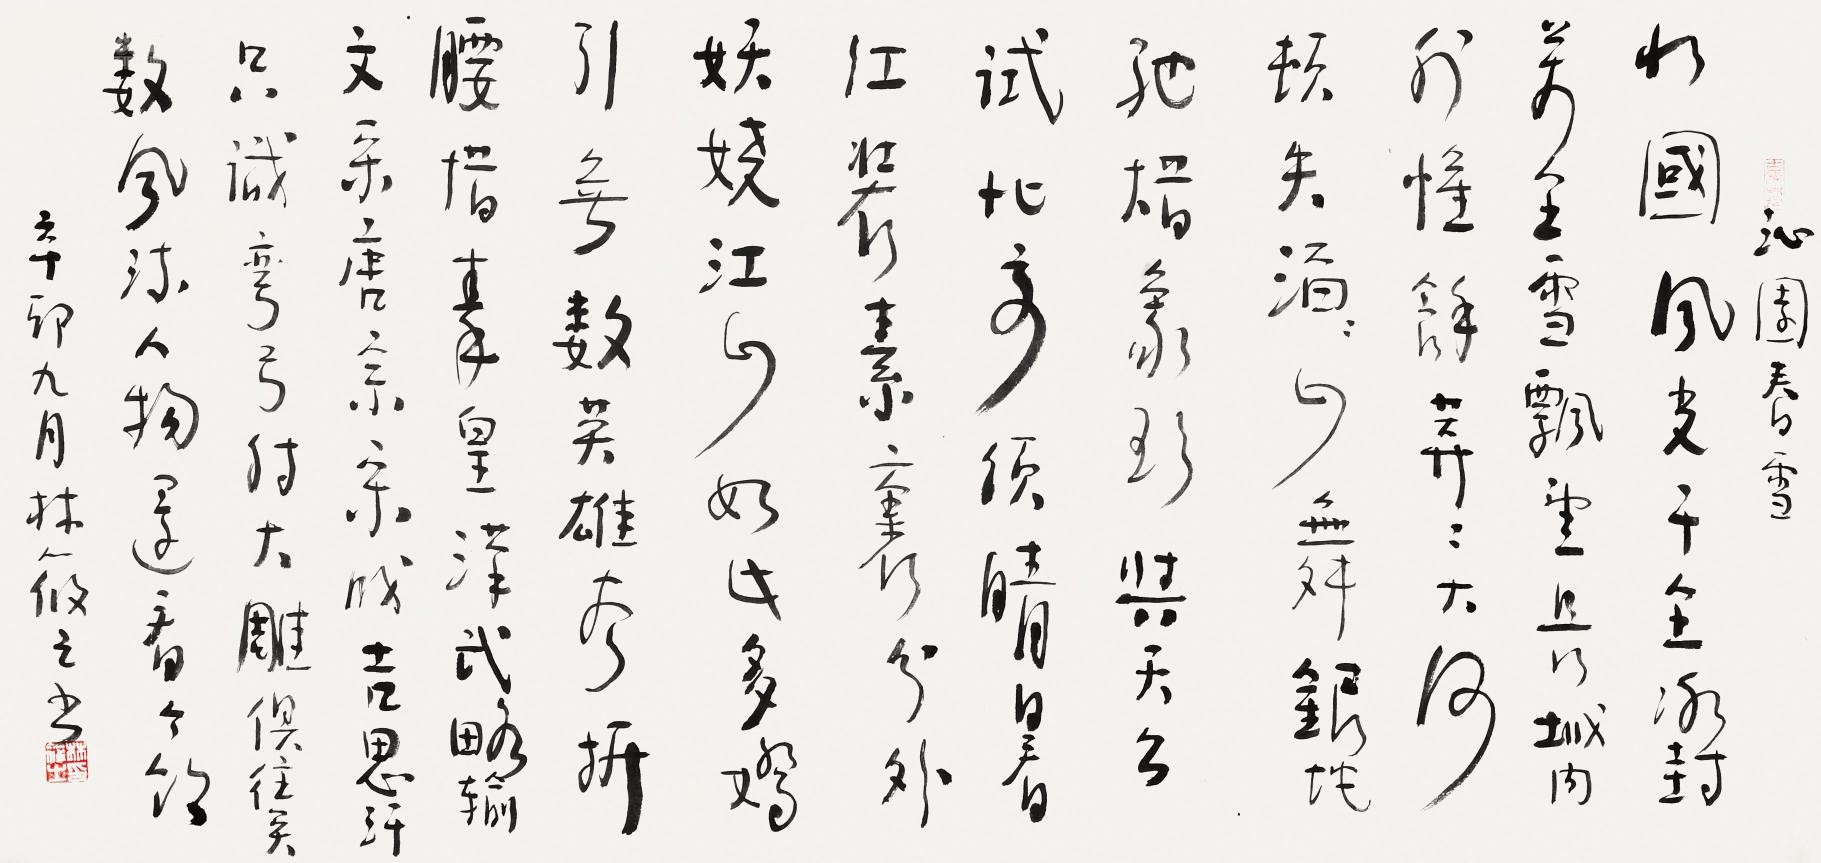 沁園春雪
北國風光千里冰封
萬里雪飄望長城內
外惟餘莽〻大河
頓失滔〻山舞銀蛇
馳蜡象欲與天公
試比高須晴日看
紅裝素裹分外
妖嬈江山如此多嬌
引無數英雄竞折
腰惜秦皇漢武略輸
文采唐宗宋成吉思汗
只識彎弓射大雕俱往矣
數風流人物還看今朝
辛卯九月林筱之書